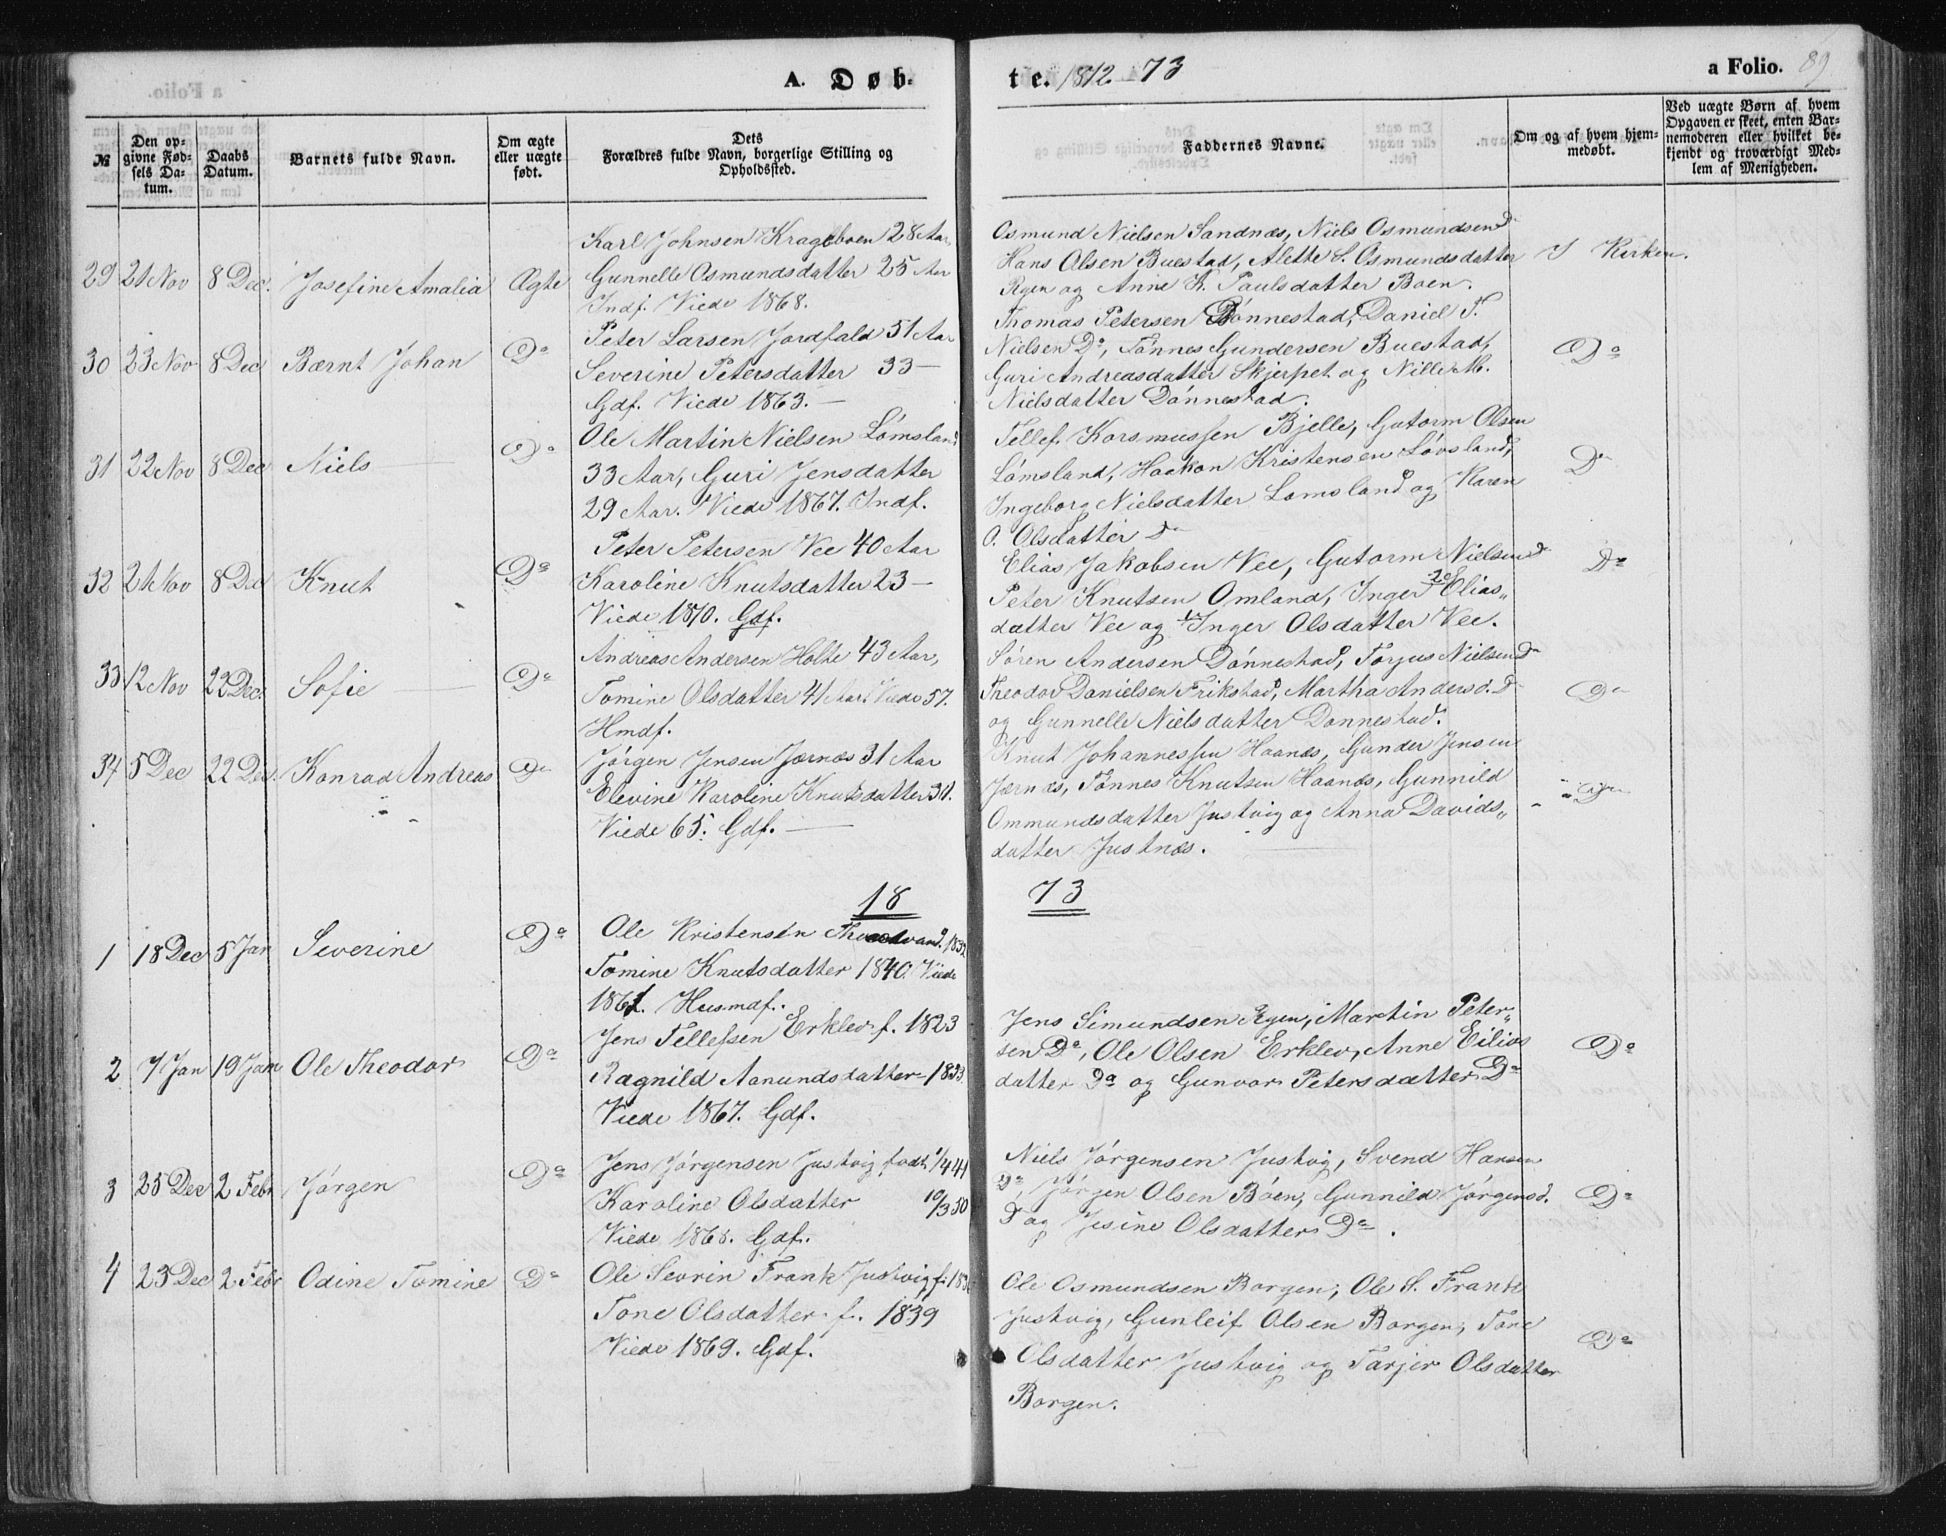 A. Døb-
te. 1872. 73
a Folio. 89
№
Den opgivne Fødsels Datum.
Daabs Datum.
Barnets fulde Navn.
Om ægte eller uægte født.
Dets Forældres fulde Navn, borgerlige Stilling og Opholdssted.
Faddernes Navne.
Om og af hvem hjemmedøbt.
Ved uægte Børn af hvem Opgaven er skeet, enten Barnemoderen eller hvilket bekjendt og troværdigt Medlem af Menigheden.
29 21 Nov 8 Dec. Josefine Amalia Ægte
Karl Johnsen Krageboen 28 Aar,
Gunnelle Osmundsdatter 25 Aar
Indf. Viede 1868.
Osmund Nielsen Sandnæs, Niels Osmundsen Do
Hans Olsen Buestad, Alette S. Osmundsdatter
Rgen og Anne K. Paulsdatter Boen.
I Kirken.
30 23 Nov 8 Dec Bærnt Johan Do
Peter Larsen Jordfald 51 Aar
Severine Petersdatter 33 —
Gdf. Viede 1863. —
Thomas Petersen Dønnestad, Daniel T.
Nielsen Do, Tønnes Gundersen Buestad,
Guri Andreasdatter Skjerpet og Nille M.
Nielsdatter Dønnestad.
Do
31 22 Nov 8 Dec Niels Do
Ole Martin Nielsen Lømsland
33 Aar, Guri Jensdatter
29 Aar. Viede 1867. Indf.
Tellef Korsmussen Bjelle, Gutorm Olsen
Lømsland, Haakon Kristensen Løvsland,
Ingeborg Nielsdatter Lømsland og Karen
O. Olsdatter Do
Do
32 21 Nov 8 Dec Knut Do
Peter Petersen Vee 40 Aar
Karoline Knutsdatter 23 —
Viede 1870. Gdf.
Elias Jakobsen Vee, Gutorm Nielsen Do
Peter Knutsen Omland, Inger Elias„
datter Vee og Inger Olsdatter Vee.
Do
33 12 Nov 22 Dec. Sofie Do
Andreas Andersen Holte 43 Aar,
Tomine Olsdatter 41 Aar. Viede 57.
Hmdf.
Søren Andersen Dønnestad, Torjus Nielsen Do
Theodor Danielsen Frikstad, Martha Andersd. Do
og Gunnelle Nielsdatter Dønnestad.
Do
34 5 Dec 22 Dec. Konrad Andreas Do
Jørgen Jensen Jærnæs 31 Aar
Elevine Karoline Knutsdatter 30.
Viede 65. Gdf. —
Knut Johannessen Haanæs, Gunder Jensen
Jærnæs, Tønnes Knutsen Haanæs, Gunnild
Ommundsdatter Justvig og Anna Davids„
datter Justnæs.
Do
18 73
1 18 Dec 5 Jan Severine Do
Ole Kristensen
Tomine Knutsdatter 1840. Viede
1861. Husmdf.
2 7 Jan 19 Jan Ole Theodor Do
Jens Tellefsen Erklev f. 1823
Ragnild Aanundsdatter 1833.
Viede 1867. Gdf.
Jens Simundsen Rgen, Martin Peter„
sen Do, Ole Olsen Erklev, Anne Eilias
datter Do og Gunvor Petersdatter Do
Do
3 25 Dec 2 Febr Jørgen Do
Jens Jørgensen Justvig født 1/4 41
Karoline Olsdatter 10/3 50
Viede 1868. Gdf.
Niels Jørgensen Justvig, Svend Hansen
Do, Jørgen Olsen Bøen, Gunnild Jørgensd.
Do og Jesine Olsdatter Do.
Do
4 23 Dec 2 Febr Odine Tomine Do
Ole Sevrin Frank Justvig f. 183
Tone Olsdatter f. 1839
Viede 1869. Gdf.
Ole Osmundsen Borgen, Ole S. Frank
Justvig, Gunleif Olsen Borgen, Tone
Olsdatter Justvig og Tarjer Olsdatter
Borgen.
Do